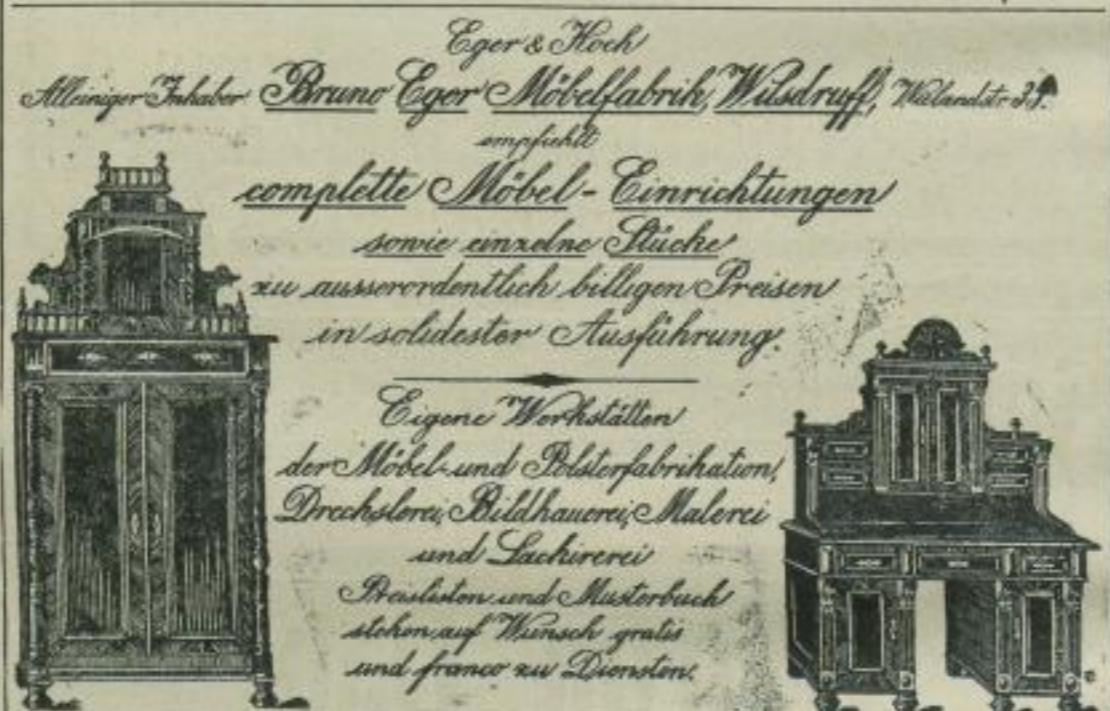 Eger & Koch
Alleiniger Inhaber Bruno Eger Möbelfabrik, Wilsdruff,
empfiehlt
complette Möbel-Einrichtungen
sowie einzelne Stücke
zu ausserordentlich billigen Preisen
in solidester Ausführung.
Eigene Werkstätten
der Möbel- und Polsterfabrikation,
Drechslerei, Bildhauerei, Malerei
und Lackirerei
Preislisten und Musterbuch
stehen auf Wunsch gratis
und franco zu Diensten.